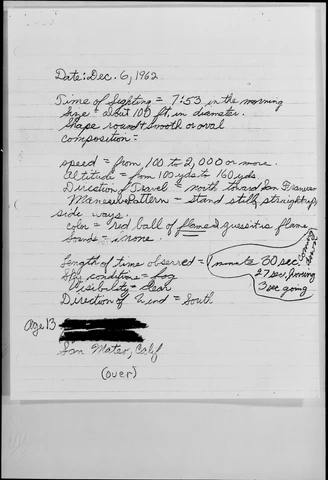 Date: Dec. 6, 1962
Time of Sighting = 7:53 in the morning
Size = about 100 ft. in diameter.
Shape round + smooth or oval
composition =
speed = from 100 to 2,000 or more.
Altitude = from 100 yds to 160 yds.
Direction of Travel = north toward San Francisco
Maneuver Pattern = stand still, straight up,
side ways.
color = red ball of flame I guess it is flame
Sounds = none.
Length of time observed = minute 30 sec. coming down
27 sec. hovering
3 sec going
Sky conditions = fog
Visibility = clear
Direction of Wind = South
Age 13
San Mateo, Calif
(over)